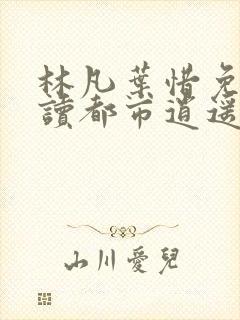 林凡葉惜免
讀都市逍遥
山川愛兒